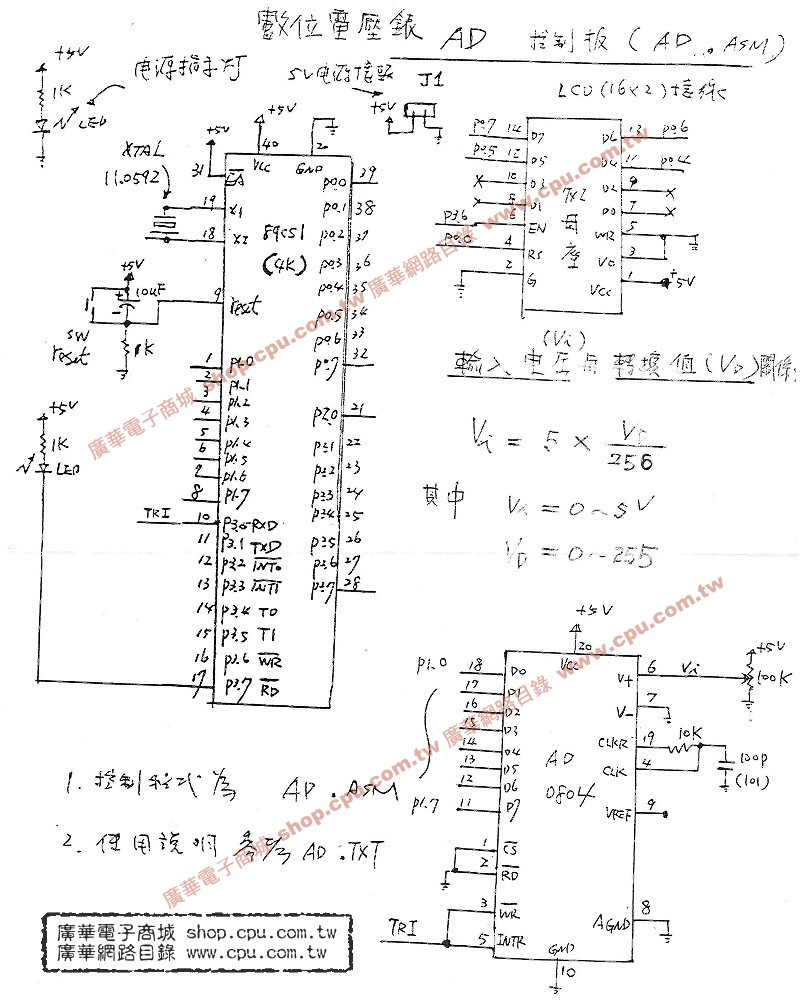 數位電壓錶 AD 控制板 (AD.ASM)
+5V
1K
LED
电源指示灯
5V电源接頭
J1
+5V
LCD (16x2) 接線
P0.7 14 D7
P0.5 12 D5
10 D3
8 D1
P3.6 6 EN
P0.0 4 RS
2 G
D6 13 P0.6
D4 11 P0.4
D2 9
D0 7
WR 5
VO 3
VCC 1 +5V
母座
XTAL
11.0592
+5V
31 EA
+5V
40
VCC
20
GND
19 X1
18 X2
89C51
(4K)
+5V
10uF
SW
reset
1K
9 reset
P0.0 39
P0.1 38
P0.2 37
P0.3 36
P0.4 35
P0.5 34
P0.6 33
P0.7 32
1 P1.0
2 P1.1
3 P1.2
4 P1.3
5 P1.4
6 P1.5
7 P1.6
8 P1.7
P2.0 21
P2.1 22
P2.2 23
P2.3 24
P2.4 25
P2.5 26
P2.6 27
P2.7 28
+5V
1K
LED
TRI 10 P3.0 RXD
11 P3.1 TXD
12 P3.2 INT0
13 P3.3 INT1
14 P3.4 T0
15 P3.5 T1
16 P3.6 WR
17 P3.7 RD
(Vi)
輸入电压与轉換值(VD)關係
Vi = 5 × VD
256
其中 Vi = 0 ~ 5V
VD = 0 ~ 255
+5V
20
VCC
P1.0 18 D0
17 D1
16 D2
15 D3
14 D4
13 D5
12 D6
P1.7 11 D7
AD
0804
V+ 6 Vi
+5V
100K
V- 7
CLKR 19 10K
CLK 4
100p
(101)
VREF 9
1 CS
2 RD
3 WR
TRI 5 INTR
AGND 8
GND
10
1. 控制程式為 AD.ASM
2. 使用說明參考 AD.TXT
廣華電子商城 shop.cpu.com.tw 廣華網路目錄 www.cpu.com.tw
廣華電子商城 shop.cpu.com.tw 廣華網路目錄 www.cpu.com.tw
廣華電子商城 shop.cpu.com.tw
廣華網路目錄 www.cpu.com.tw